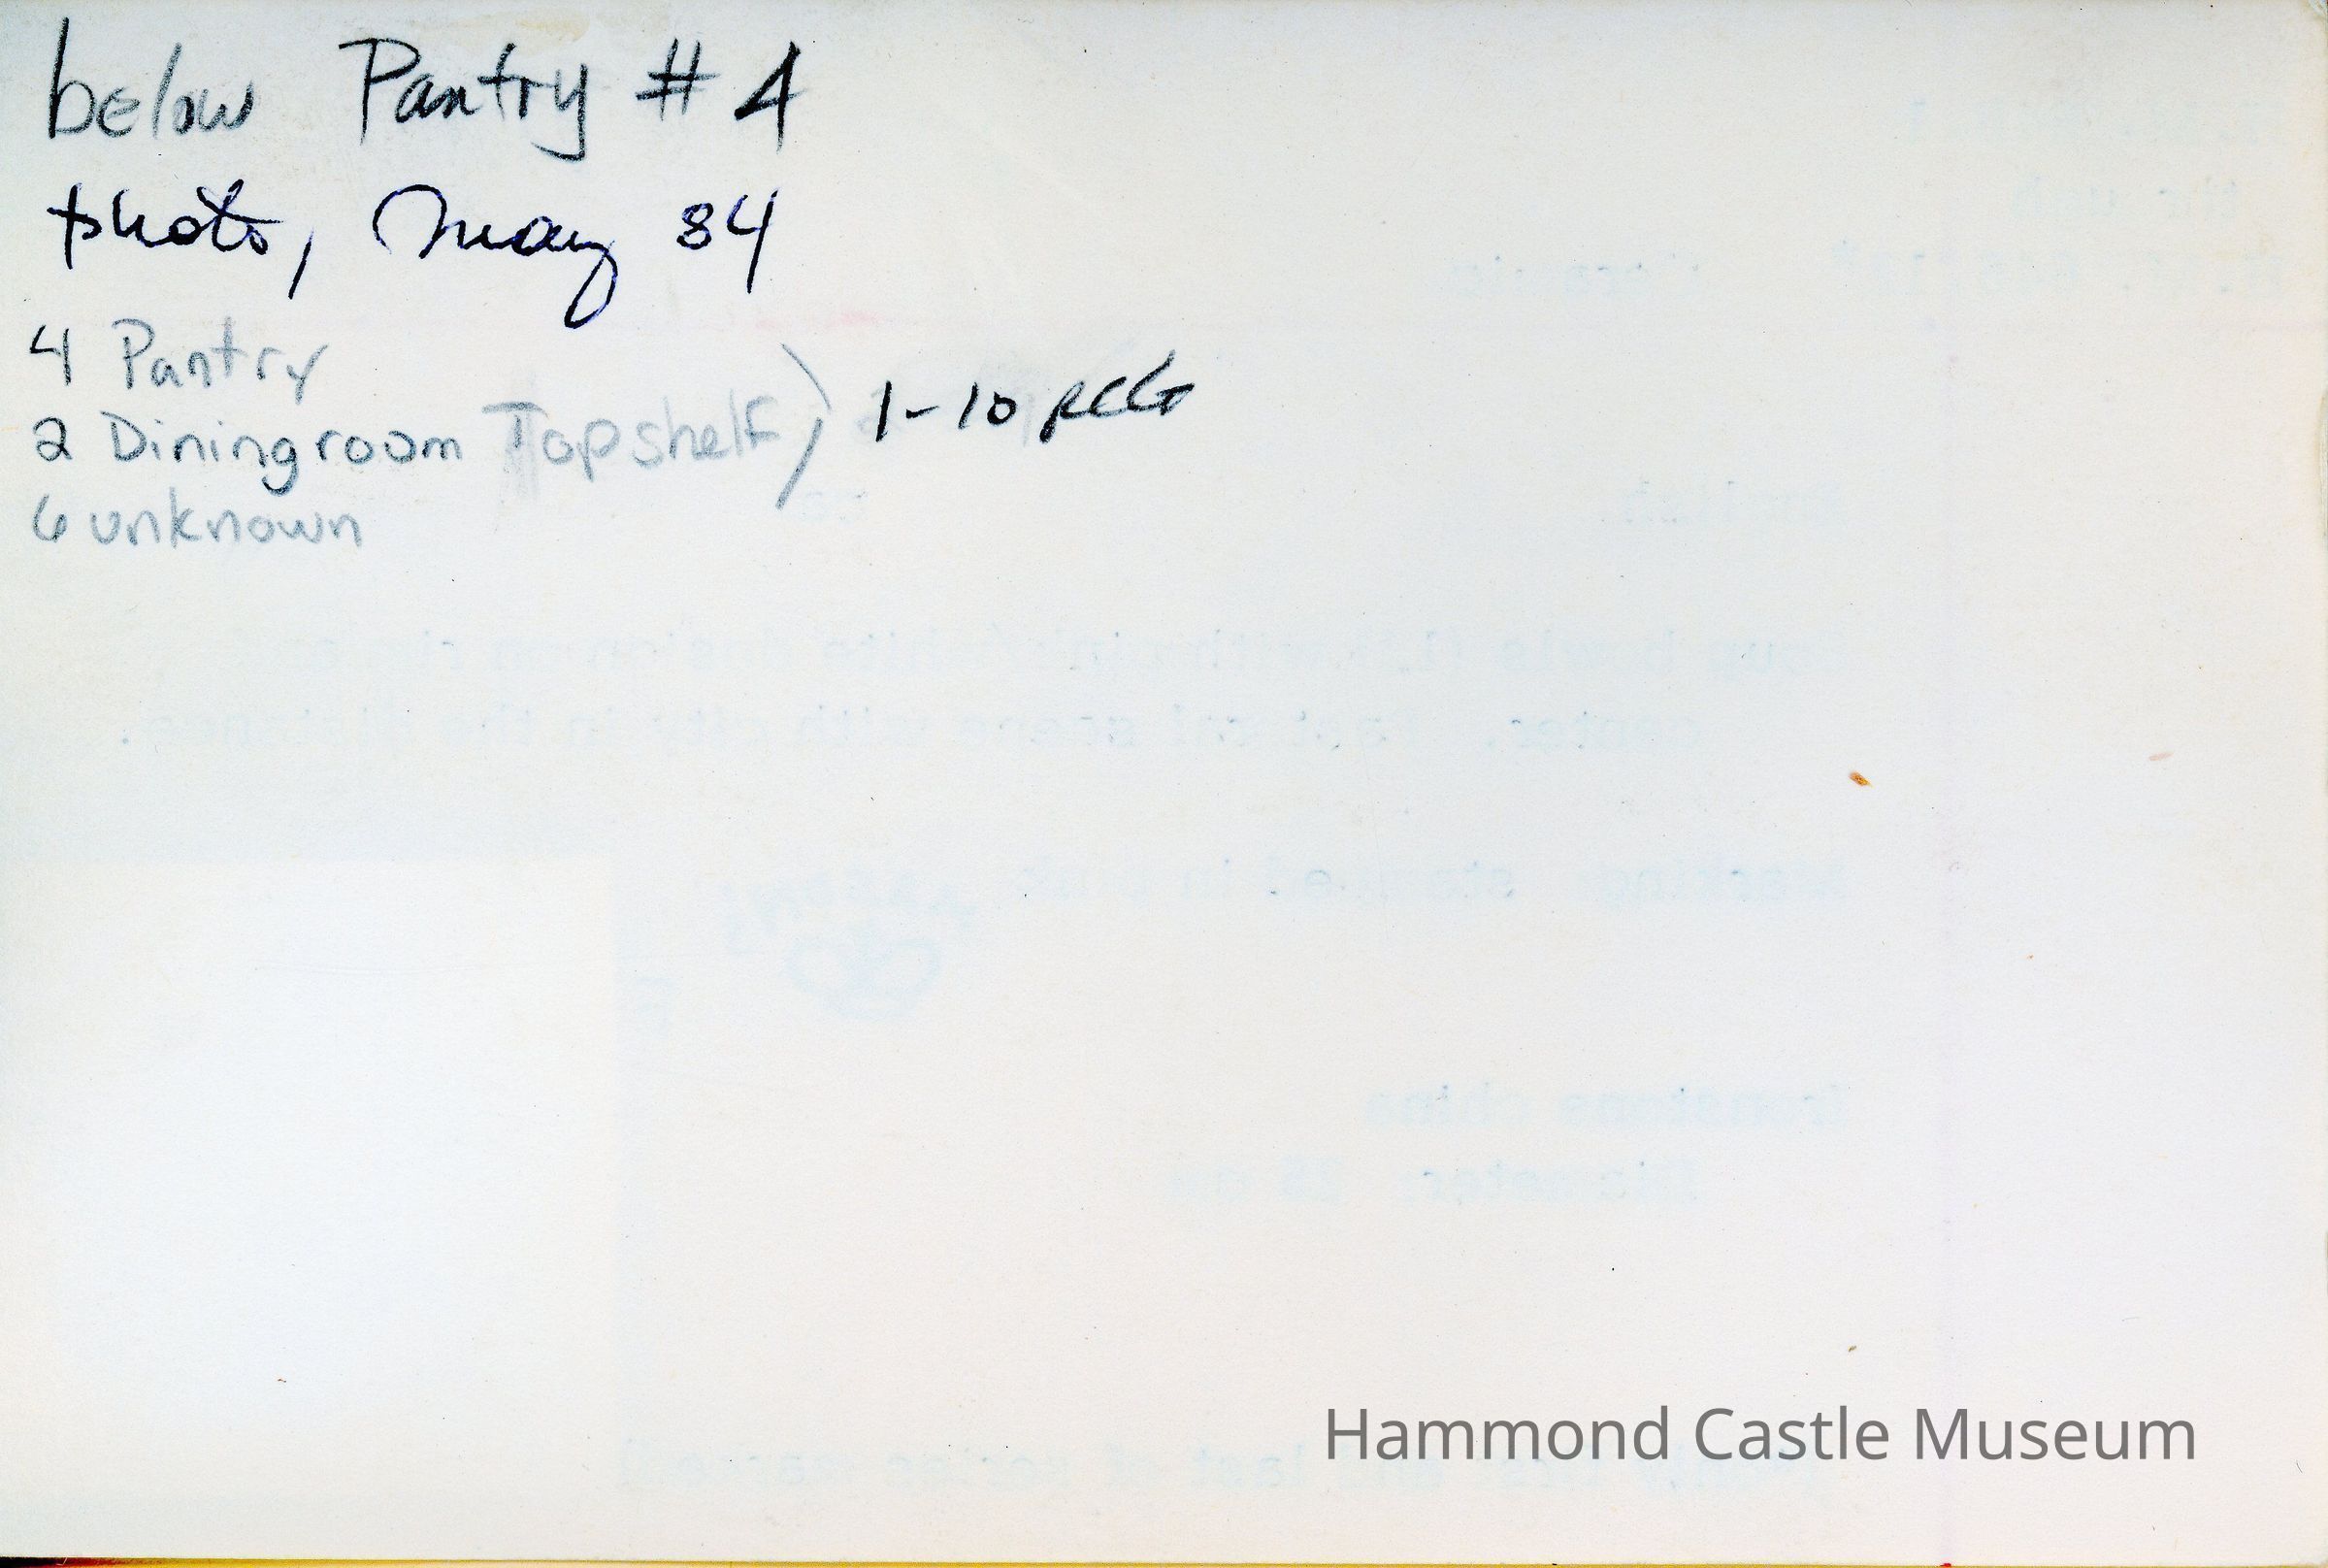 below Pantry # 4
photo, May 84
4 Pantry
2 Diningroom Topshelf) 1-10 REG
6 unknown
Hammond Castle Museum